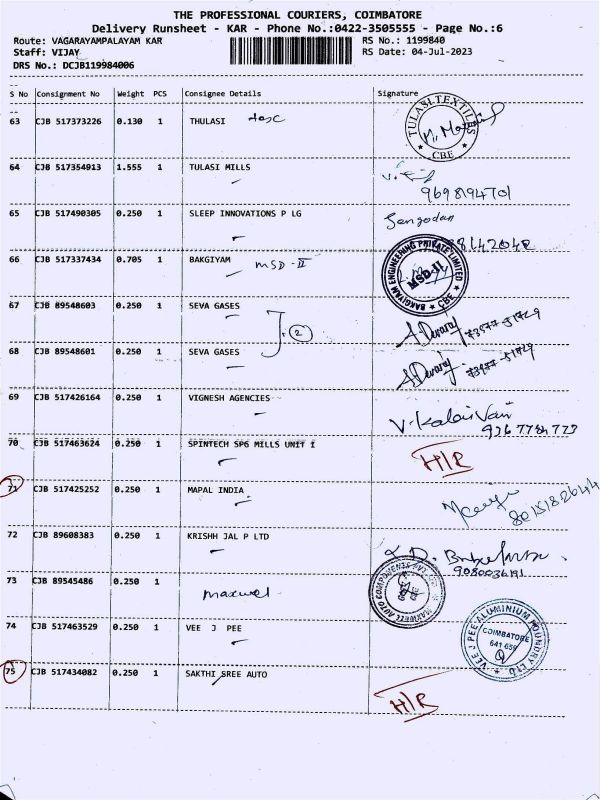 THE PROFESSIONAL COURIERS, COIMBATORE
Delivery Runsheet - KAR - Phone No.:0422-3505555 - Page No.:6
Route: VAGARAYAMPALAYAM KAR RS No.: 1199840
Staff: VIJAY RS Date: 04-Jul-2023
DRS No.: DCJB119984006
S No Consignment No Weight PCS Consignee Details Signature
63 CJB 517373226 0.130 1 THULASI TULASI TEXTILES CBE
64 CJB 517354913 1.555 1 TULASI MILLS
9698194701
65 CJB 517490305 0.250 1 SLEEP INNOVATIONS P LG Sengodan
66 CJB 517337434 0.705 1 BAKGIYAM MSD-II BAKGIYAM ENGINEERING PRIVATE LIMITED MSD-II CBE
67 CJB 89548603 0.250 1 SEVA GASES 2 A. Devaraj 73977-51729
68 CJB 89548601 0.250 1 SEVA GASES A. Devaraj 73977-51729
69 CJB 517426164 0.250 1 VIGNESH AGENCIES V. Kalaivani
70 CJB 517463624 0.250 1 SPINTECH SP6 MILLS UNIT I H/R
71 CJB 517425252 0.250 1 MAPAL INDIA
72 CJB 89608383 0.250 1 KRISHH JAL P LTD
9080036191
73 CJB 89545486 0.250 1 maxwel
74 CJB 517463529 0.250 1 VEE J PEE VEE J PEE ALUMINIUM FOUNDRY LTD COIMBATORE
75 CJB 517434082 0.250 1 SAKTHI SREE AUTO H/R